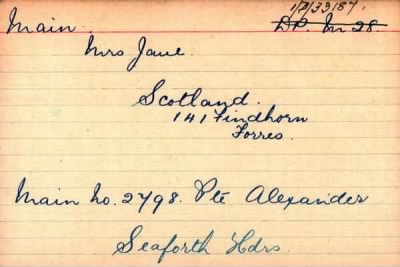 1/D/33187.
Main. D.P. M 28.
Mrs Jane
Scotland.
141 Findhorn
Forres.
Main No. 2798. Pte Alexander
Seaforth Hdrs.